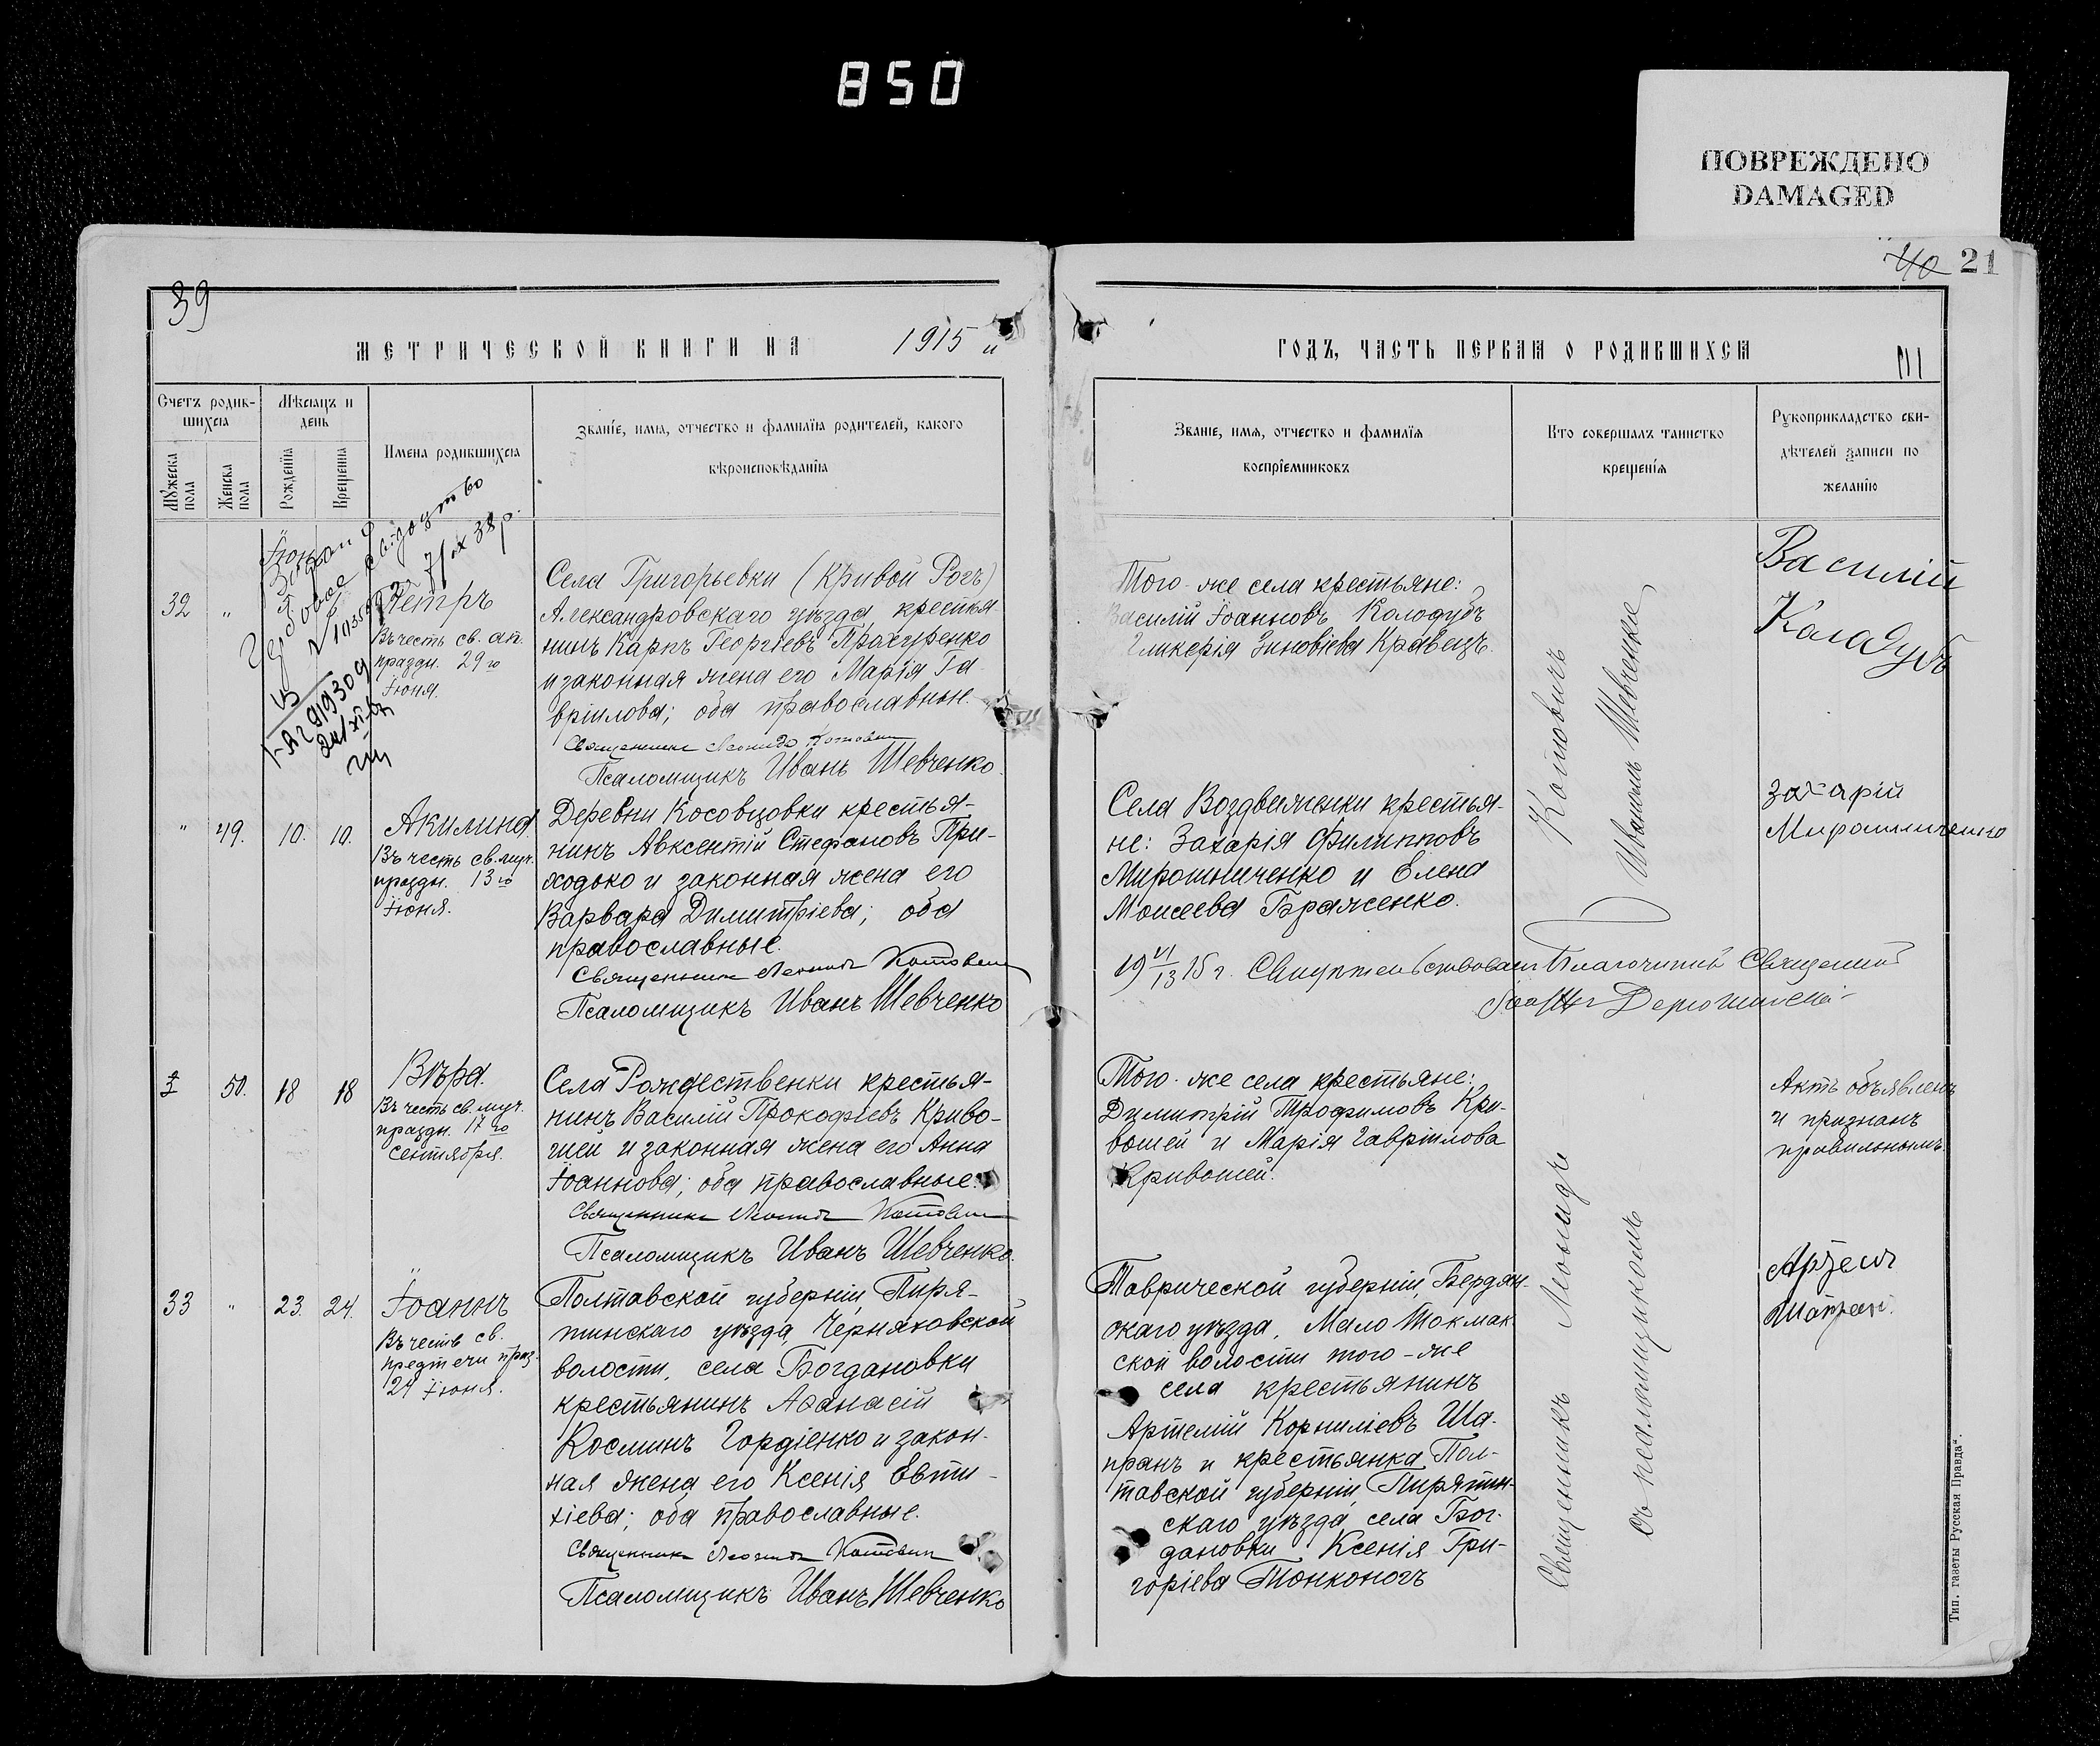 850
ПОВРЕЖДЕНО
DAMAGED
39
МЕТРИЧЕСКОЙ КНИГИ НА 1915 й
Счетъ родив-
шихся
Мѣсяцъ и
день
Мужеска
пола
Женска
пола
Рожденія
Крещенія
Имена родившихся
Званіе, имя, отчество и фамилія родителей, какого
вѣроисповѣданія
свідоцтво
7/IX 38 р.
Іюнь
32 " Петръ
Въ честь св. ап.
праздн. 29го
Іюня.
Села Григорьевки (Кривой Рогъ)
Александровскаго уѣзда, крестья-
нинъ Карпъ Георгіевъ Прахуренко
и законная жена его Марія Га-
вріилова; оба православные.
Священникъ Леонидъ Котовичъ
Псаломщикъ Иванъ Шевченко.
" 49. 10. 10. Акилина.
Въ честь св. муч.
праздн. 13го
Іюня.
Деревни Косовцовки крестья-
нинъ Авксентій Стефановъ При-
ходько и законная жена его
Варвара Димитріева; оба
православные.
Священникъ Леонидъ Котовичъ
Псаломщикъ Иванъ Шевченко
50. 18 18 Вѣра.
Въ честь св. муч.
праздн. 17го
Сентября.
Села Рождественки крестья-
нинъ Василій Прокофіевъ Криво-
шей и законная жена его Анна
Іоаннова; оба православные.
Священникъ Леонидъ Котовичъ
Псаломщикъ Иванъ Шевченко.
33 " 23. 24. Іоаннъ
Въ честь св.
предтечи праз.
24 Іюня.
Полтавской губерніи, Пиря-
тинскаго уѣзда, Черняховской
волости, села Богдановки
крестьянинъ Аѳанасій
Косминъ Гордіенко и закон-
ная жена его Ксенія Евти-
хіева; оба православные.
Священникъ Леонидъ Котовичъ
Псаломщикъ Иванъ Шевченко
40 21
ГОДЪ, ЧАСТЬ ПЕРВАЯ О РОДИВШИХСЯ
Званіе, имя, отчество и фамилія
воспріемниковъ
Кто совершалъ таинство
крещенія
Рукоприкладство сви-
дѣтелей записи по
желанію
Того-же села крестьяне:
Василій Іоанновъ Колодубъ
Гликерія Зиновіева Кравецъ.
Василій
Каладубъ
Села Воздвиженки крестья-
не: Захарія Филипповъ
Мирошниченко и Елена
Моисеева Браженко.
Захарій
Мирошниченко
19 VI/13 15 г. Свидѣтельствовалъ Благочинный Священникъ
Того-же села крестьяне:
Димитрій Трофимовъ Кри-
вошей и Марія Гавріилова
Кривошей.
Актъ объявленъ
и признанъ
правильнымъ.
Таврической губерніи, Бердян-
скаго уѣзда, Мало Токмак-
ской волости того-же
села крестьянинъ
Артемій Корниліевъ Ша-
пранъ и крестьянка Пол-
тавской губерніи, Пирятин-
скаго уѣзда села Бог-
дановки Ксенія Гри-
горіева Тонконогъ
Артемъ
Шапран.
Священникъ Леонидъ Котовичъ
съ псаломщикомъ Иваномъ Шевченко
Тип. газеты „Русская Правда“.